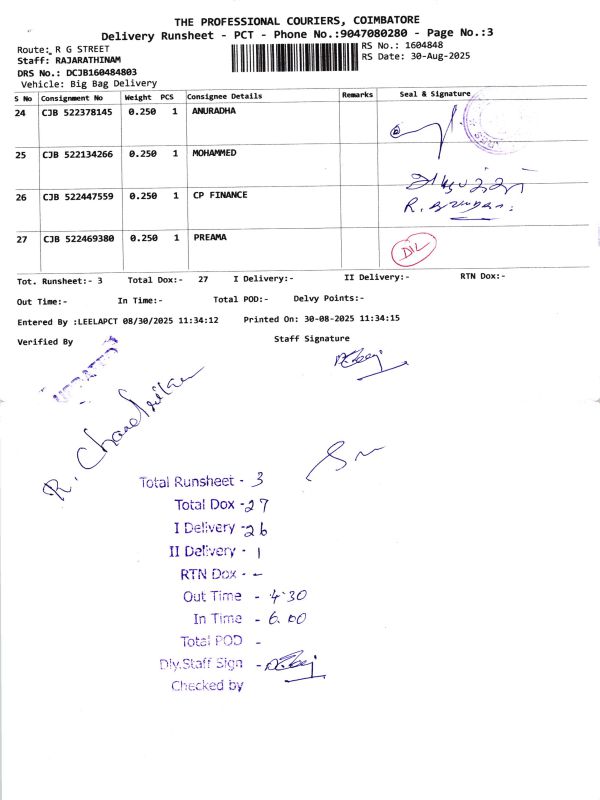 THE PROFESSIONAL COURIERS, COIMBATORE
Delivery Runsheet - PCT - Phone No.:9047080280 - Page No.:3
Route: R G STREET
RS No.: 1604848
Staff: RAJARATHINAM
RS Date: 30-Aug-2025
DRS No.: DCJB160484803
Vehicle: Big Bag Delivery
S No Consignment No Weight PCS Consignee Details Remarks Seal & Signature
24 CJB 522378145 0.250 1 ANURADHA
25 CJB 522134266 0.250 1 MOHAMMED
26 CJB 522447559 0.250 1 CP FINANCE
27 CJB 522469380 0.250 1 PREAMA
Tot. Runsheet:- 3 Total Dox:- 27 I Delivery:- II Delivery:- RTN Dox:-
Out Time:- In Time:- Total POD:- Delvy Points:-
Entered By :LEELAPCT 08/30/2025 11:34:12 Printed On: 30-08-2025 11:34:15
Verified By Staff Signature
UPDATED
Total Runsheet - 3
Total Dox - 27
I Delivery - 26
II Delivery - 1
RTN Dox - -
Out Time - 4.30
In Time - 6.00
Total POD -
Dly.Staff Sign -
Checked by